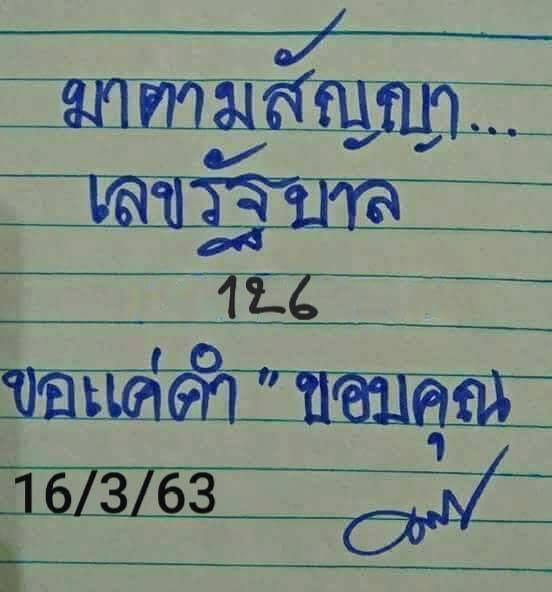 มาตามสัญญา...
เลขรัฐบาล
126
ขอแค่คำ "ขอบคุณ
16/3/63